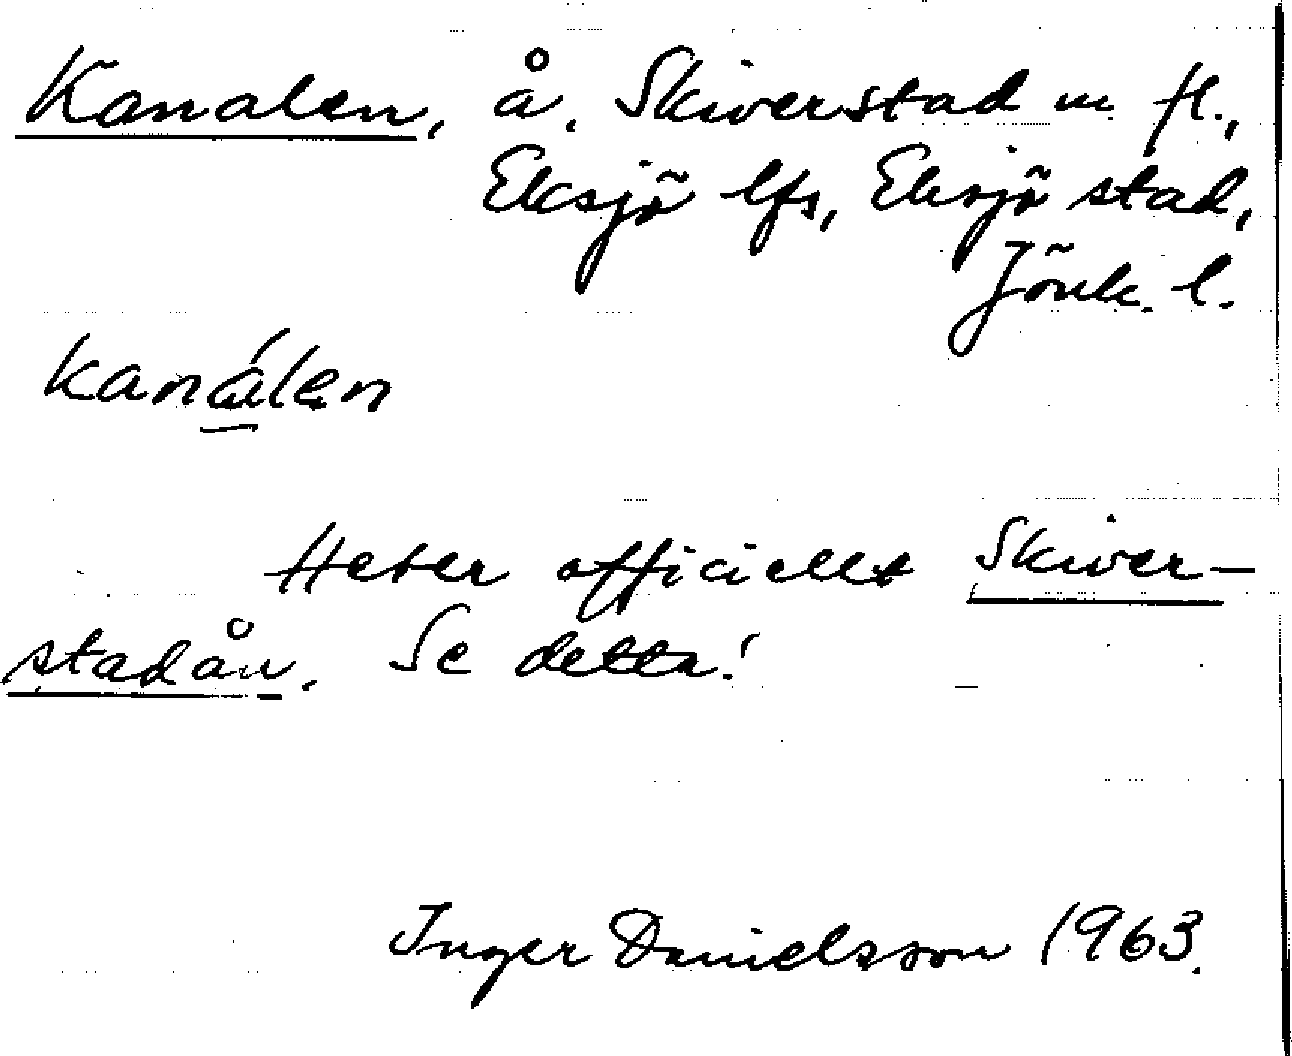 Kanalen, å, Skiverstad m fl.,
Eksjö lfs, Eksjö stad,
Jönk. l.
kanálen
Heter officiellt Skiver-
stadån. Se detta!
Inger Danielsson 1963.